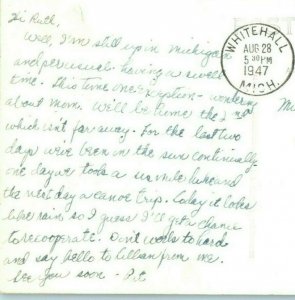 Hi Ruth,
Well, I'm still up in Michigan
and per usual - having a swell
time. This time one exception - wondering
about mom. We'll be home the 3
which isn't far away. For the last two
days we've been in the sun continually -
one day we took a mile hike and
the next day a canoe trip. Today it looks
like rain so I guess I'll get a chance
to recooperate. Don't work to hard
and say hello to Lillian from me.
See you soon -
WHITEHALL
AUG 28
5 30 PM
1947
MICH.